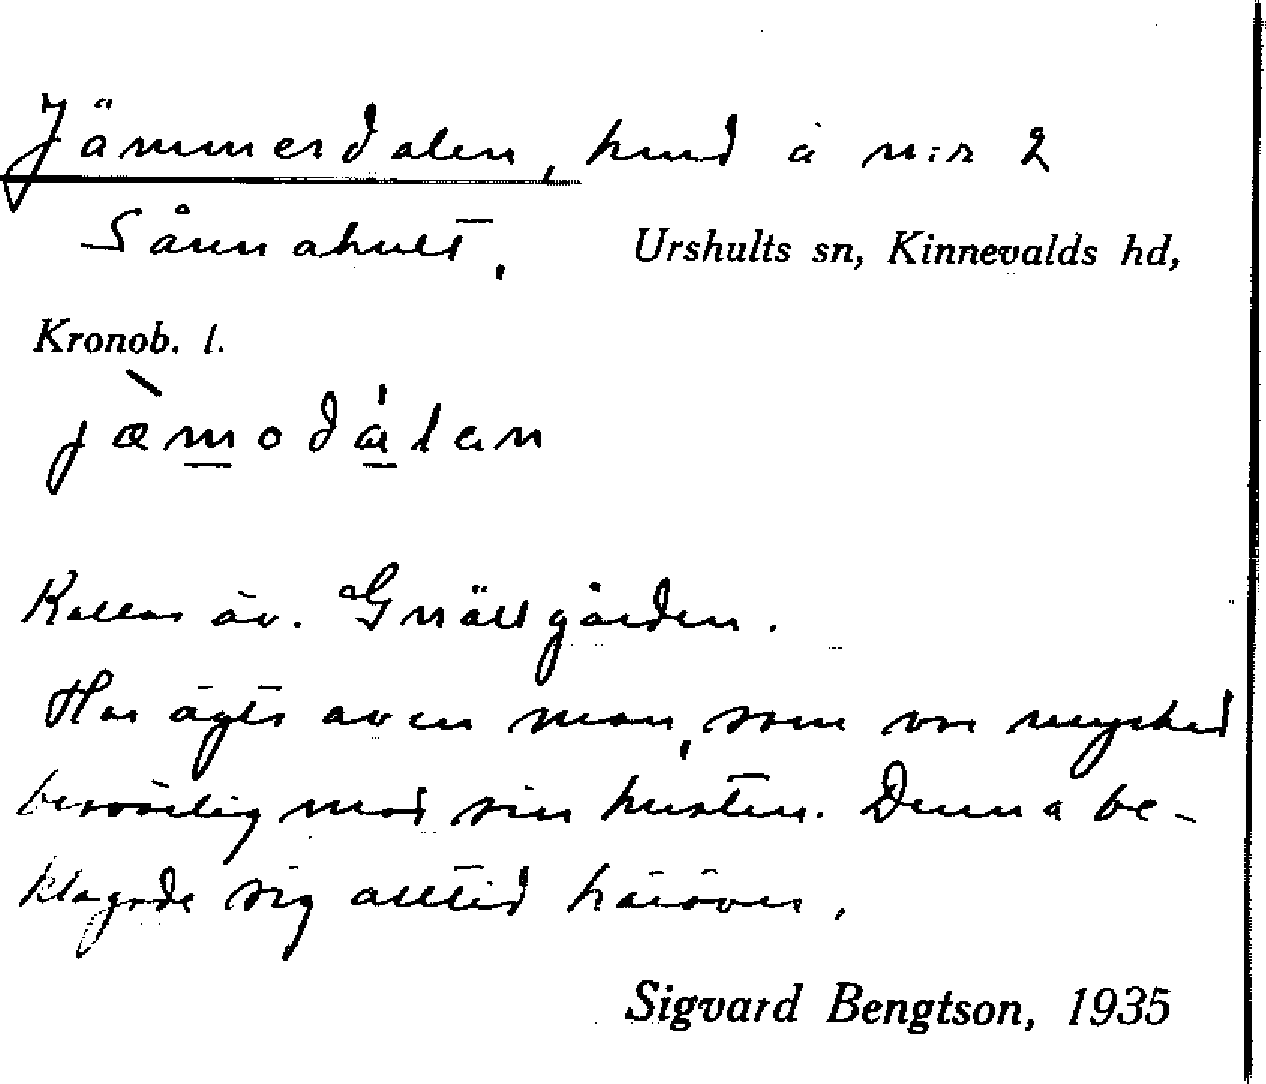 Jämmerdalen, hmd å n:r 2
Sånnahult,
Urshults sn, Kinnevalds hd,
Kronob. l.
jæ̀modálan
Kallas äv. Gnällgården.
Har ägts av en man, som var mycket
besvärlig mot sin hustru. Denna be-
klagade sig alltid häröver.
Sigvard Bengtson, 1935